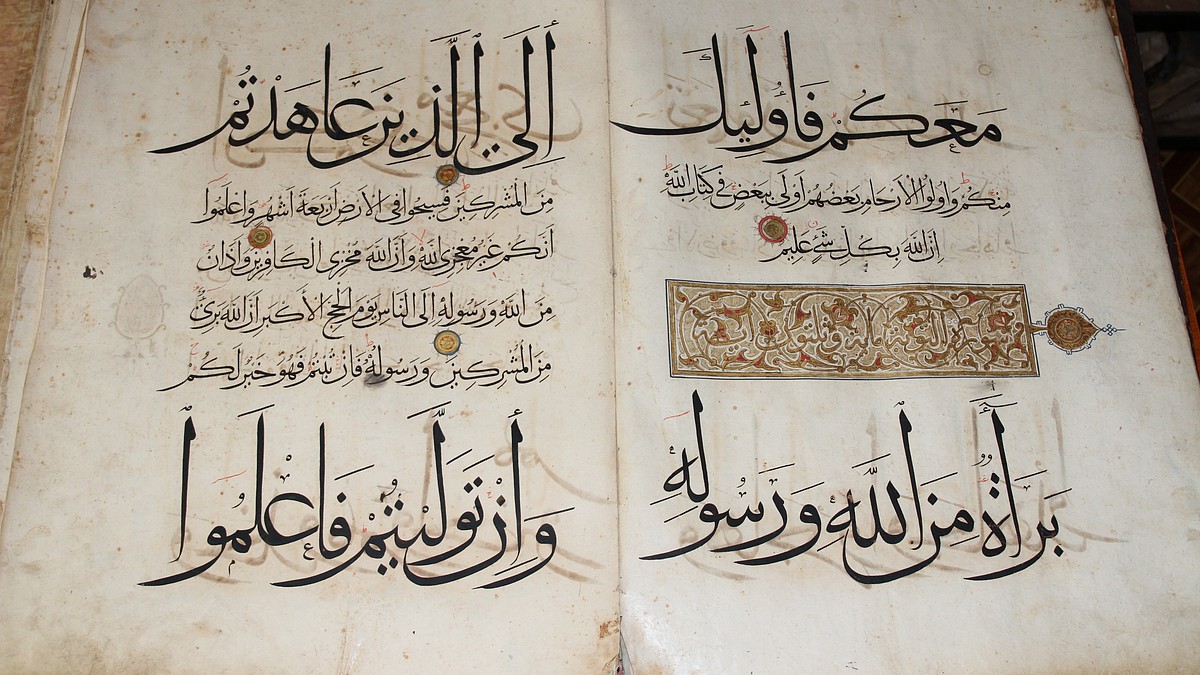 مَعَكُمْ فَأُولَٰئِكَ
مِنكُمْ وَأُولُوا الْأَرْحَامِ بَعْضُهُمْ أَوْلَىٰ بِبَعْضٍ فِي كِتَابِ اللَّهِ
إِنَّ اللَّهَ بِكُلِّ شَيْءٍ عَلِيمٌ
سورة التوبة مائة وثلثون
بَرَاءَةٌ مِنَ اللَّهِ وَرَسُولِهِ
إِلَى الَّذِينَ عَاهَدتُّمْ
مِنَ الْمُشْرِكِينَ فَسِيحُوا فِي الْأَرْضِ أَرْبَعَةَ أَشْهُرٍ وَاعْلَمُوا
أَنَّكُمْ غَيْرُ مُعْجِزِي اللَّهِ وَأَنَّ اللَّهَ مُخْزِي الْكَافِرِينَ وَأَذَانٌ
مِنَ اللَّهِ وَرَسُولِهِ إِلَى النَّاسِ يَوْمَ الْحَجِّ الْأَكْبَرِ أَنَّ اللَّهَ بَرِيءٌ
مِنَ الْمُشْرِكِينَ وَرَسُولُهُ فَإِنْ تُبْتُمْ فَهُوَ خَيْرٌ لَكُمْ
وَإِنْ تَوَلَّيْتُمْ فَاعْلَمُوا